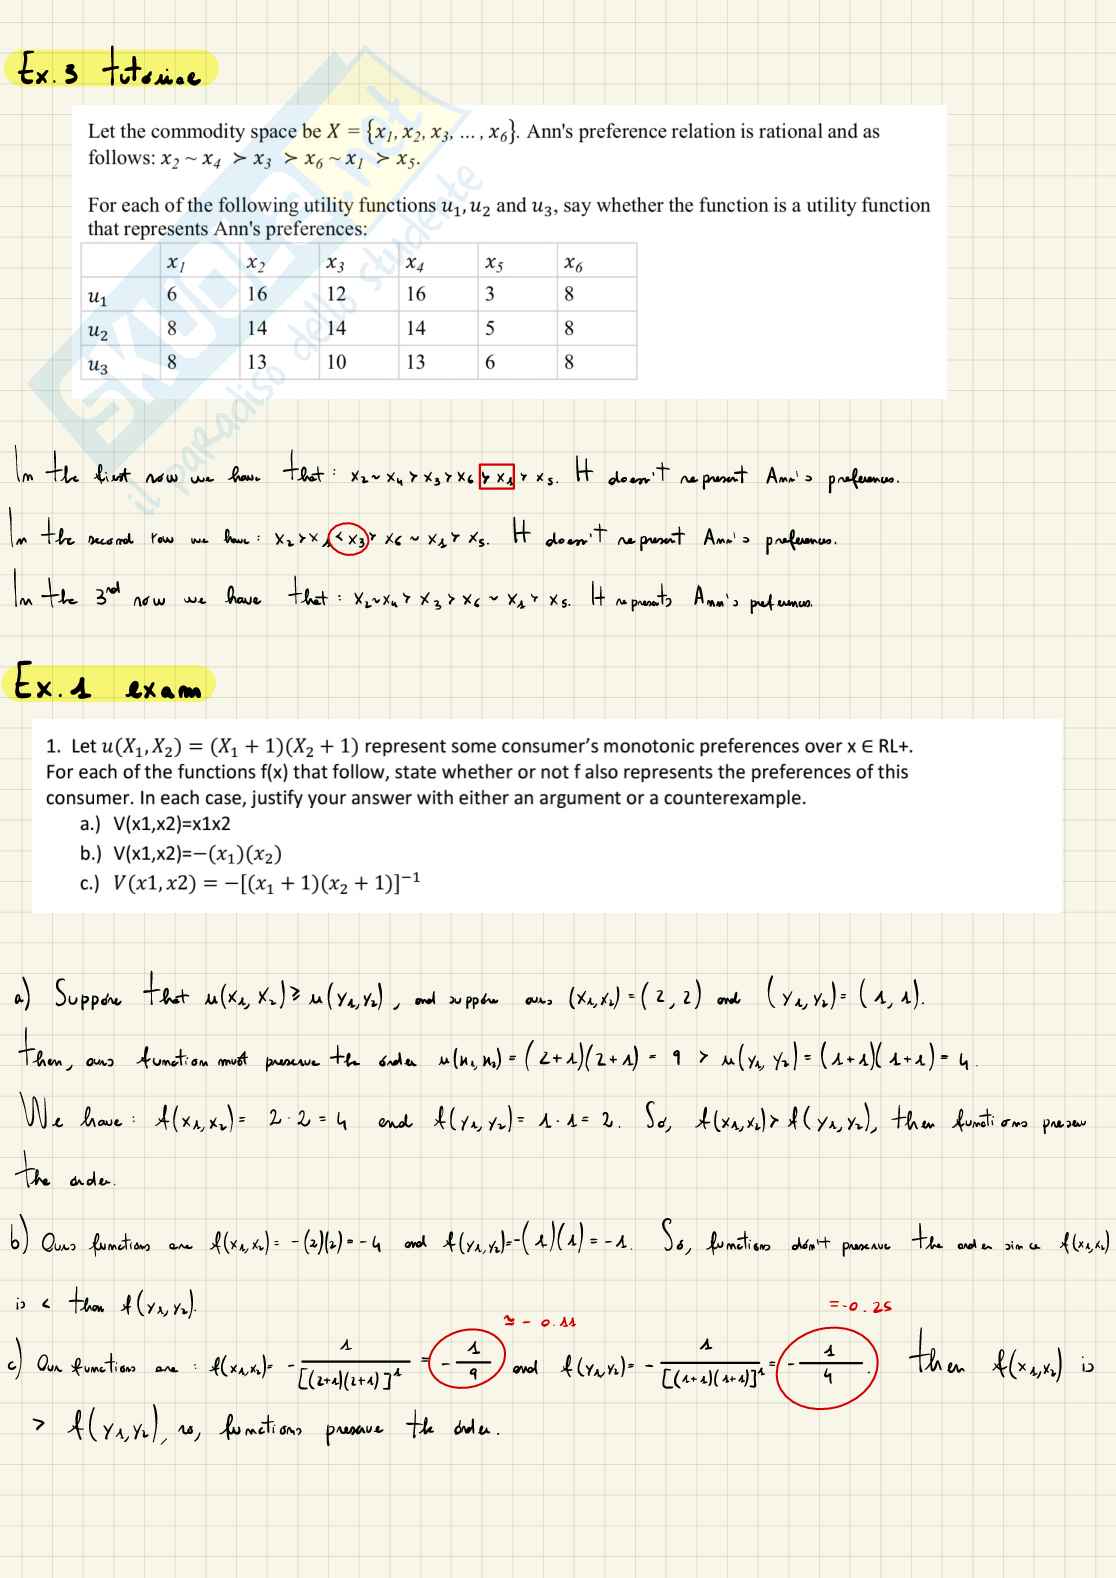 Ex. 3 tutoriae
Let the commodity space be X = {x1, x2, x3, ... , x6}. Ann's preference relation is rational and as
follows: x2 ~ x4 ≻ x3 ≻ x6 ~ x1 ≻ x5.
For each of the following utility functions u1, u2 and u3, say whether the function is a utility function
that represents Ann's preferences:
x1 x2 x3 x4 x5 x6
u1 6 16 12 16 3 8
u2 8 14 14 14 5 8
u3 8 13 10 13 6 8
SKUOLA.net
il paradiso dello studente
In the first row we have that : x2 ~ x4 ≻ x3 ≻ x6 ≻ x1 ≻ x5. It doesn't represent Ann's preferences.
In the second row we have : x2 ≻ x1 < x3 ≻ x6 ~ x1 ≻ x5. It doesn't represent Ann's preferences.
In the 3rd row we have that : x2 ~ x4 ≻ x3 ≻ x6 ~ x1 ≻ x5. It represents Ann's preferences.
Ex. 1 exam
1. Let u(X1, X2) = (X1 + 1)(X2 + 1) represent some consumer's monotonic preferences over x ∈ RL+.
For each of the functions f(x) that follow, state whether or not f also represents the preferences of this
consumer. In each case, justify your answer with either an argument or a counterexample.
a.) V(x1,x2)=x1x2
b.) V(x1,x2)=−(x1)(x2)
c.) V(x1, x2) = −[(x1 + 1)(x2 + 1)]−1
a) Suppose that u(x1, x2) ≥ u(y1, y2), and suppose (x1, x2) = (2, 2) and (y1, y2) = (1, 1).
then, function must preserve the order u(x1, x2) = (2+1)(2+1) = 9 > u(y1, y2) = (1+1)(1+1) = 4.
We have : f(x1, x2) = 2 · 2 = 4 and f(y1, y2) = 1 · 1 = 2. So, f(x1, x2) > f(y1, y2), then functions preserv
the order.
b) Ours functions are f(x1, x2) = -(2)(2) = -4 and f(y1, y2) = -(1)(1) = -1. So, functions don't preserve the order since f(x1, x2)
is < than f(y1, y2).
≃ - 0.11 = -0.25
c) Our functions are : f(x1, x2) = - 1/[(2+1)(2+1)]^1 = - 1/9 and f(y1, y2) = - 1/[(1+1)(1+1)]^1 = - 1/4. then f(x1, x2) is
> f(y1, y2), so, functions preserve the order.